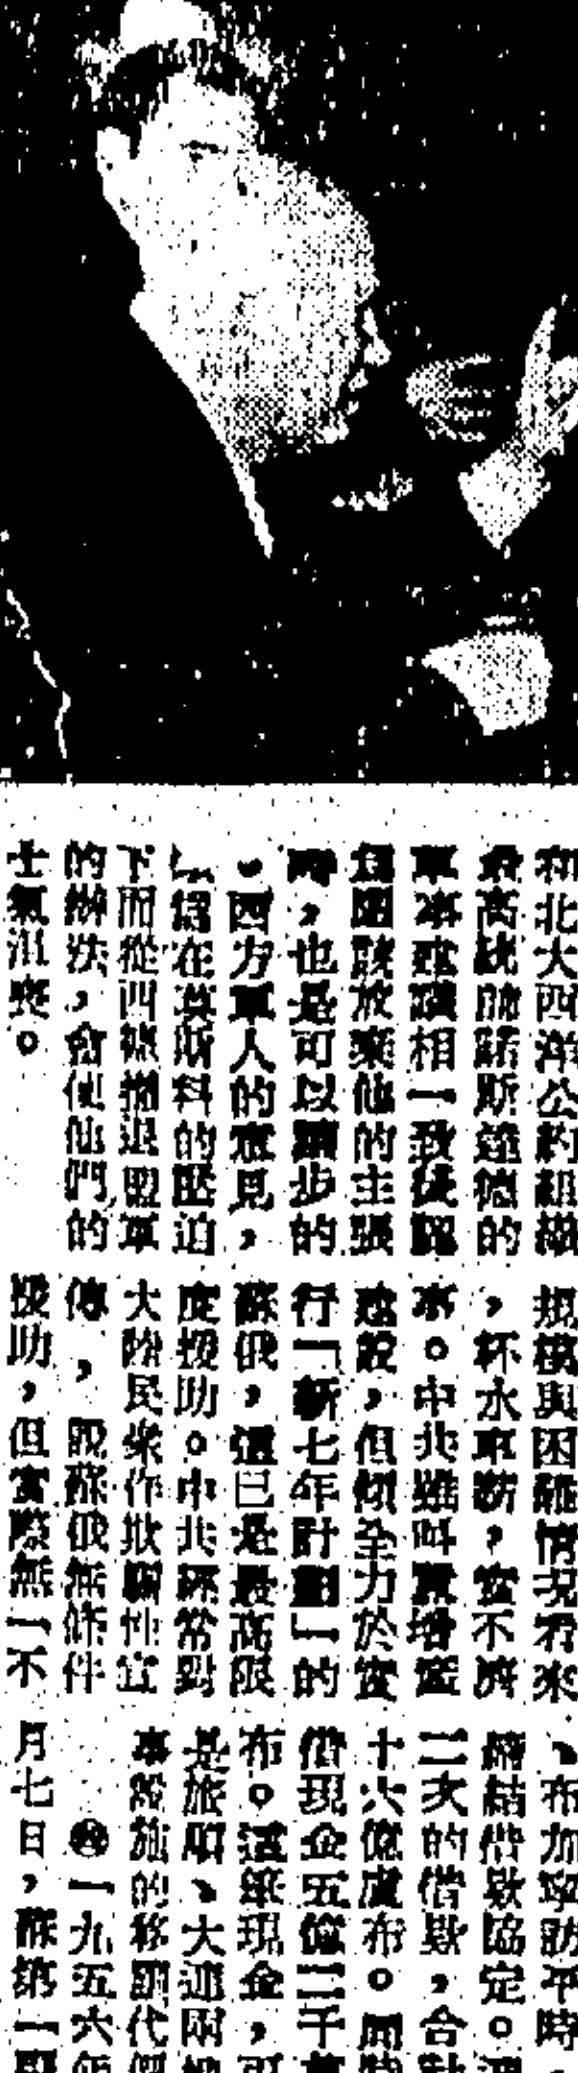 和北大西洋公約組織
最高統帥諾斯達德的
軍事建議相一致後認
爲應該放棄他的主張
時，也是可以讓步的
。西方軍人的意見，
信在莫斯科的壓迫
下而從西德撤退盟軍
的辦法，會使他們的
士氣沮喪。
規模與困難情況看來
，杯水車薪，實不濟
事。中共雖叫囂增產
建設，但傾全力於實
行「新七年計劃」的
蘇俄，這已是最高限
度援助。中共經常對
大陸民衆作欺騙性宣
傳，說蘇俄無條件
援助，但實際無一不
、布加寧訪平時，
締結借款協定。連
二次的借款，合計
十六億盧布。同時
借現金五億二千萬
布。這筆現金，可
是旅順、大連兩地
事設施的移讓代價
一九五六年
月七日，蘇第一